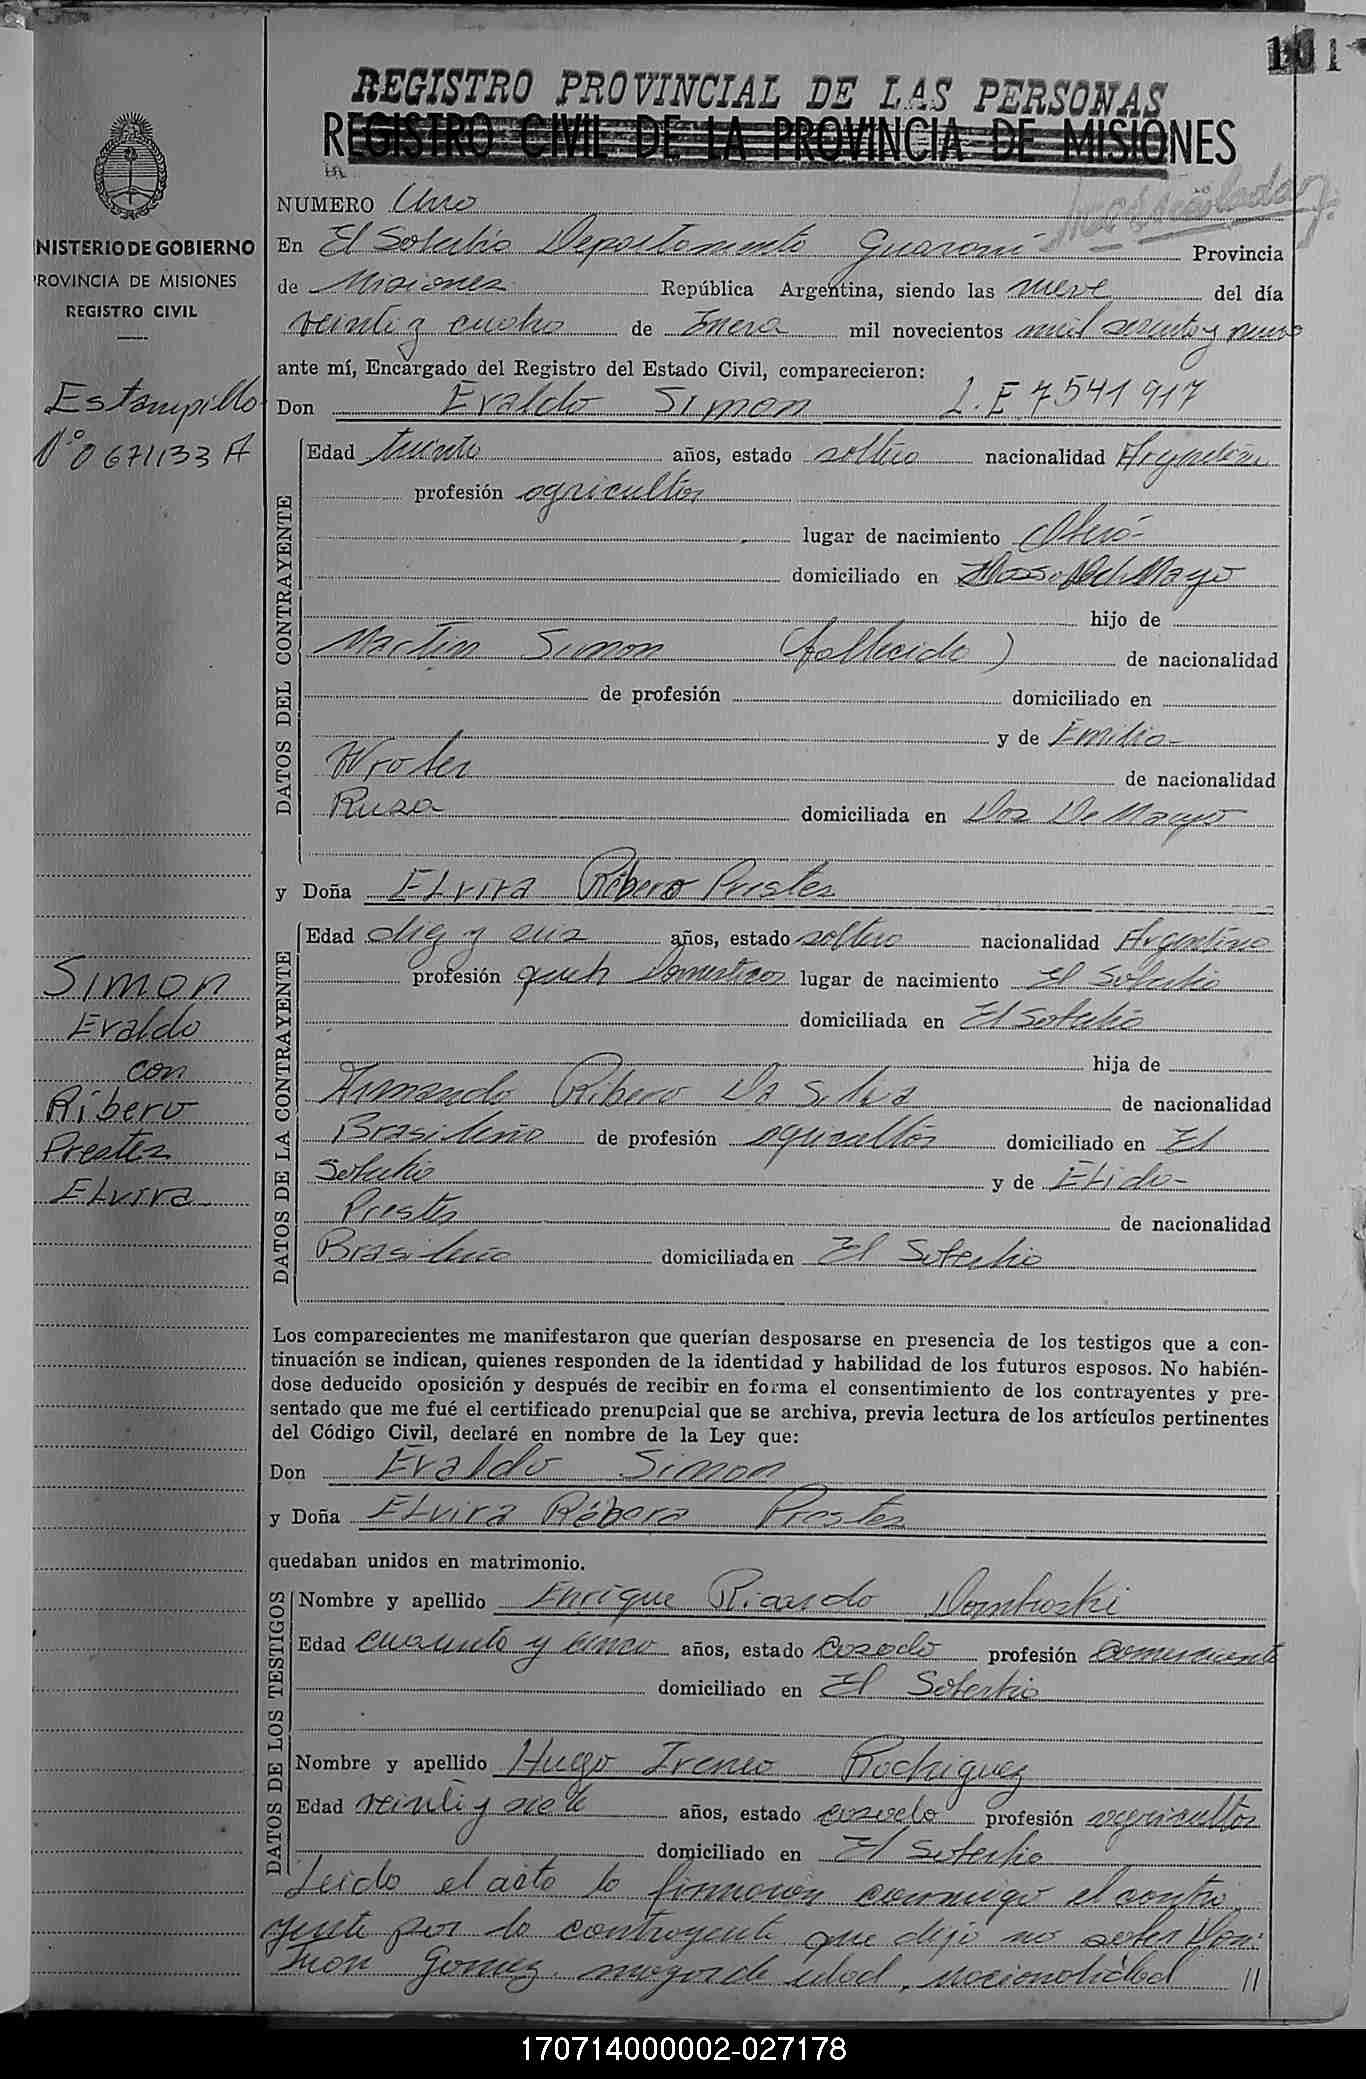 101
REGISTRO PROVINCIAL DE LAS PERSONAS
REGISTRO CIVIL DE LA PROVINCIA DE MISIONES
NUMERO Uno
En El Soberbio Departamento Guaraní Provincia
de Misiones República Argentina, siendo las nueve del día
veinti y cuatro de Enero mil novecientos mil sesenta y nueve
ante mí, Encargado del Registro del Estado Civil, comparecieron:
Don Evaldo Simon L.E 7541917
DATOS DEL CONTRAYENTE
Edad treinta años, estado soltero nacionalidad Argentina
profesión agricultor
lugar de nacimiento Oberá-
domiciliado en Dos Del Mayo
hijo de
Martin Simon (fallecido) de nacionalidad
de profesión domiciliado en
y de Emilia-
de nacionalidad
Rusa domiciliada en Dos De Mayo
y Doña Elvira Ribero Prestes
DATOS DE LA CONTRAYENTE
Edad diez y seis años, estado soltera nacionalidad Argentina
profesión queh Domesticos lugar de nacimiento El Soberbio
domiciliada en El Soberbio
hija de
Armando Ribero Da Silva de nacionalidad
Brasileño de profesión agricultor domiciliado en El
Soberbio y de Elida-
Prestes de nacionalidad
Brasileña domiciliada en El Soberbio
Los comparecientes me manifestaron que querían desposarse en presencia de los testigos que a con-
tinuación se indican, quienes responden de la identidad y habilidad de los futuros esposos. No habién-
dose deducido oposición y después de recibir en forma el consentimiento de los contrayentes y pre-
sentado que me fué el certificado prenupcial que se archiva, previa lectura de los artículos pertinentes
del Código Civil, declaré en nombre de la Ley que:
Don Evaldo Simon
y Doña Elvira Ribero Prestes
quedaban unidos en matrimonio.
DATOS DE LOS TESTIGOS
Nombre y apellido Enrique Ricardo
Edad cuarenta y cinco años, estado casado profesión comerciante
domiciliado en El Soberbio
Nombre y apellido Hugo Ireneo Rodriguez
Edad veinti y siete años, estado casado profesión agricultor
domiciliado en El Soberbio
Leido el acto lo firmaron conmigo el contra
yente por la contrayente que dijo no saber Don:
Juan Gomez mayor de edad, nacionalidad //
MINISTERIO DE GOBIERNO
PROVINCIA DE MISIONES
REGISTRO CIVIL
Estampilla
Nº 0671133 A
Simon
Evaldo
con
Ribero
Prestes
Elvira
170714000002-027178